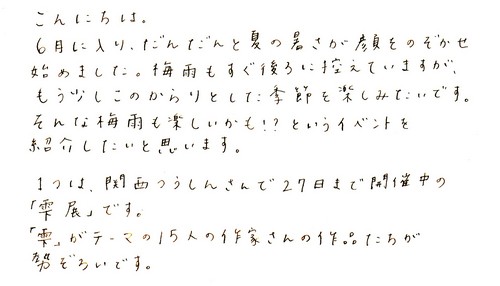 こんにちは。
6月に入り、だんだんと夏の暑さが顔をのぞかせ
始めました。梅雨もすぐ後ろに控えていますが、
もう少しこのからりとした季節を楽しみたいです。
そんな梅雨も楽しいかも!?というイベントを
紹介したいと思います。
1つは、関西つうしんさんで27日まで開催中の
「雫展」です。
「雫」がテーマの15人の作家さんの作品たちが
勢ぞろいです。